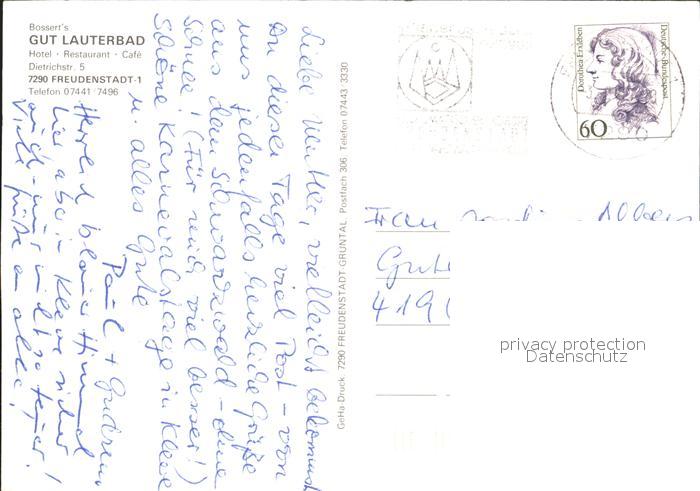 Bossert's
GUT LAUTERBAD
Hotel · Restaurant · Café
Dietrichstr. 5
7290 FREUDENSTADT-1
Telefon 07441 / 7496
Liebe Mutter, vielleicht bekommst
Du dieser Tage viel Post - von
uns jedenfalls herzliche Grüße
aus dem Schwarzwald - ohne
Schnee! (Für mich viel besser!)
Schöne Karnevalstage in Kleve
u. alles Gute
Paul + Gudrun
Herrlich blauer Himmel
hier aber in Kleve sicher
auch - nur nicht so teuer!
Viele Grüße an alle!
GeHa-Druck. 7290 FREUDENSTADT-GRÜNTAL, Postfach 306. Telefon 07443 3330
Dorothea Erxleben
Deutsche Bundespost
60
Frau
419
privacy protection
Datenschutz